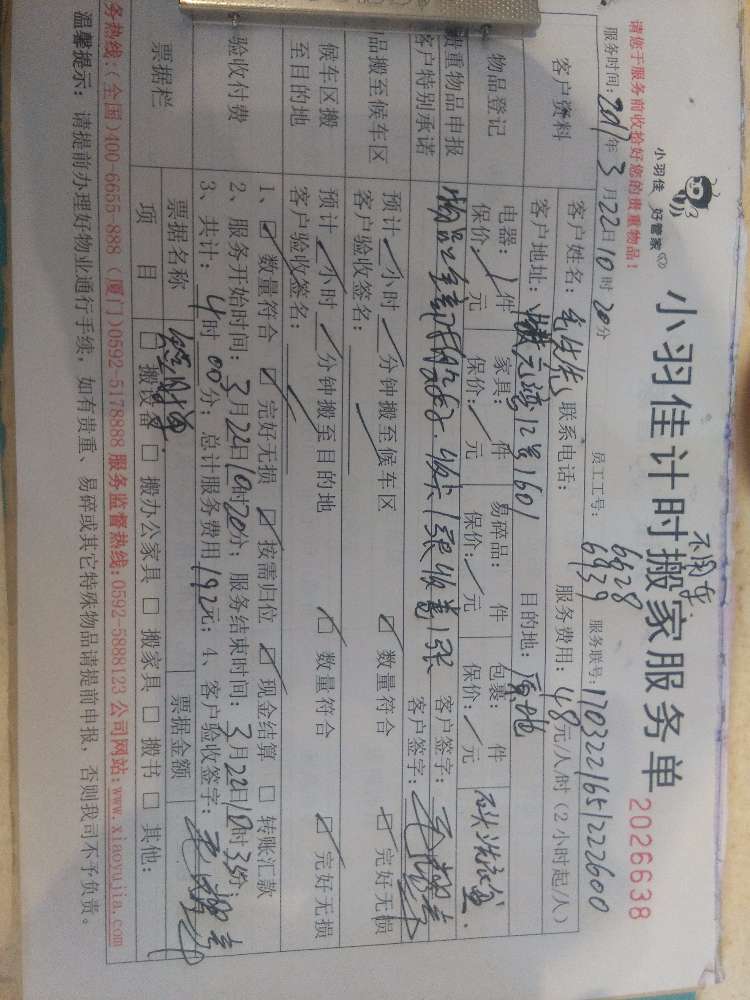 请您于服务前收拾好您的贵重物品!
小羽佳 好管家
小羽佳计时搬家服务单
2026638
不用车
服务时间: 2017年3月22日10时20分
员工工号: 6928 6939
服务联号: 1703221651222600
客户资料
客户姓名: 毛先生
联系电话:
服务费用: 48元/人/时(2小时起/人)
客户地址: 1601
目的地: 原地
物品登记
电器: 1件
家具: 件
易碎品: 件
包裹: 件
保价: 元
保价: 元
保价: 元
保价: 元
贵重物品申报
客户特别承诺
客户签字:
客户签字:
品搬至候车区
预计 小时 分钟搬至候车区
数量符合
完好无损
客户验收签名:
候车区搬
至目的地
预计 小时 分钟搬至目的地
数量符合
完好无损
客户验收签名:
验收付费
1、数量符合 完好无损 按需归位 现金结算 转账汇款
2、服务开始时间: 3月22日10时20分; 服务结束时间: 3月22日10时35分;
3、共计: 4时00分; 总计服务费用192元; 4、客户验收签字:
票据栏
票据名称
票据金额
项目
搬设备 搬办公家具 搬家具 搬书 其他:
务热线:(全国)400-6655-888 (厦门)0592-5178888 服务监督热线:0592-5888123 公司网站:www.xiaoyujia.com
温馨提示: 请提前办理好物业通行手续, 如有贵重、易碎或其它特殊物品请提前申报, 否则我司不予负责。